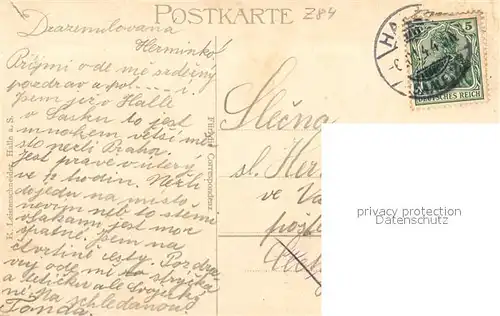 POSTKARTE
Z84
Drazemilovana
Herminko!
Přijmi ode mě srdečný
pozdrav a pol-----i.
Jsem již v Halle
v Sasku to jest
mnohem větší mě-
sto nežli Praha.
jest právě v úterý
ve 12 hodin. Nežli
dojedu na místo
nevím neb to stěmi
vlakami jest moc
špatné. Jsem na
čtvrtině cesty. Pozdra-
vuj ode mě strýčka
a tetičku ale Svojecký
né. Na schledanou
Tonda.
K. Leistenschneider, Halle a. S.
Für die Correspondenz
Slečna
sl. Her
ve
HA
5
DEUTSCHES REICH
privacy protection
VERDATENSCHUTZ